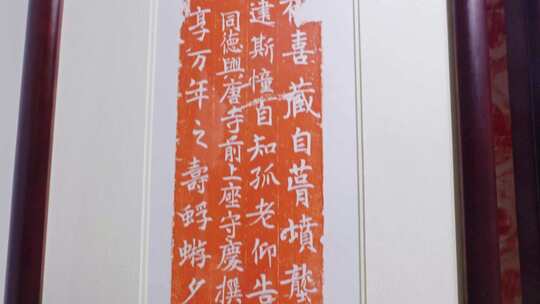 喜藏自
達斯憧自知孤老仰告
同德興唐寺前上座守慶撰
享万年之壽蜉蝣夕